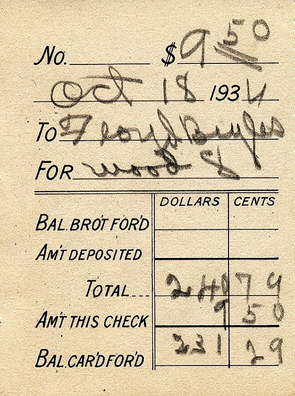 No. $9 50
Oct 18 1934
To Floyd
For wood
BAL. BRO'T FOR'D DOLLARS CENTS
AM'T DEPOSITED
TOTAL... 240 79
AM'T THIS CHECK 9 50
BAL. CAR'D FOR'D 231 29